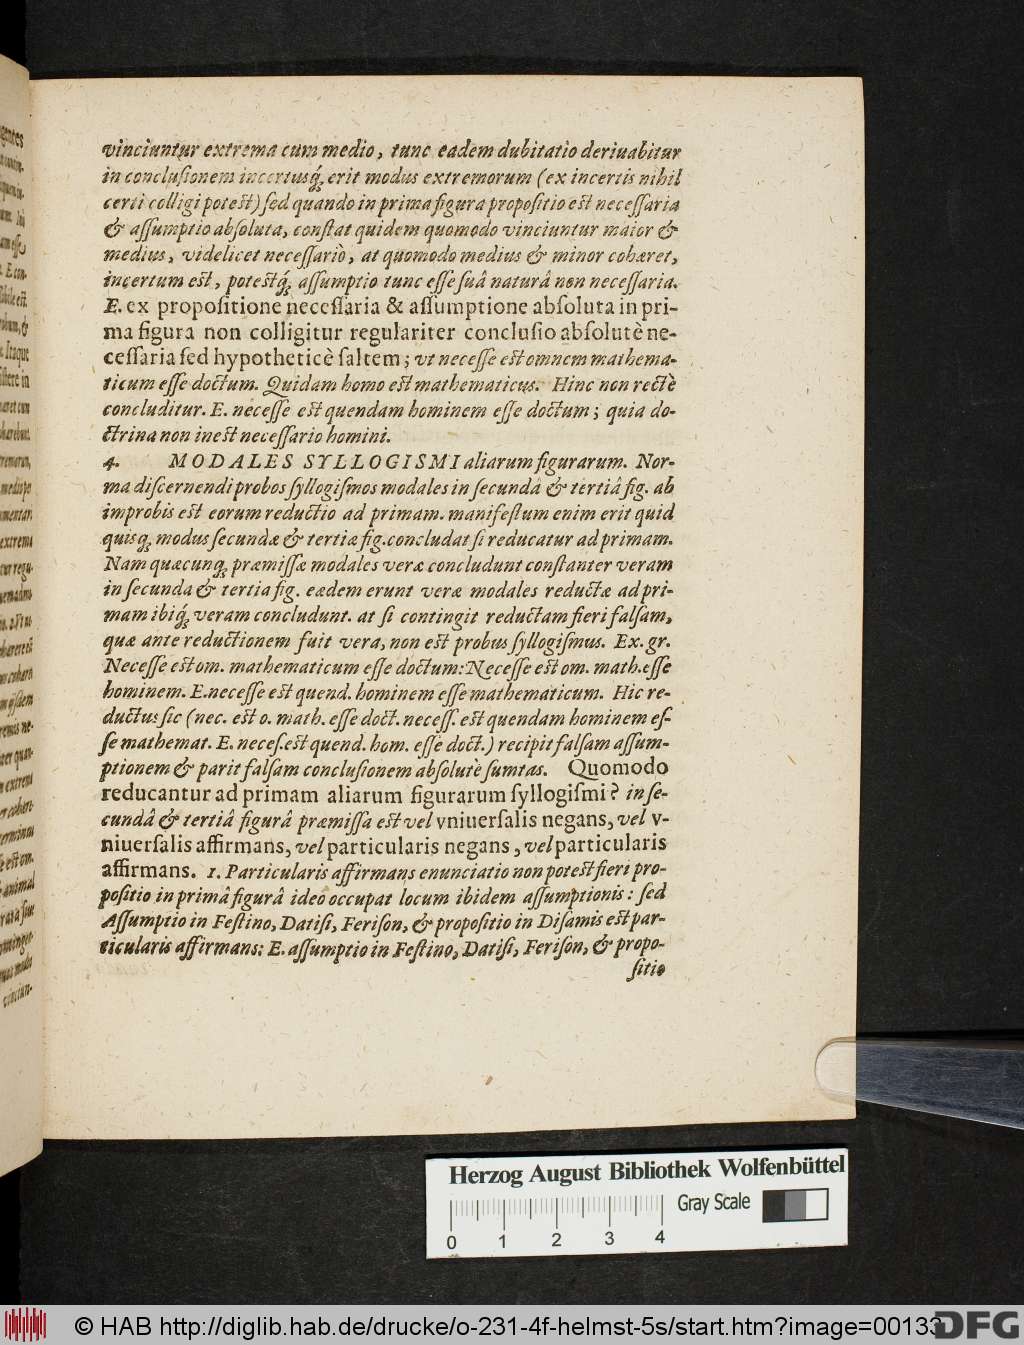 vinciuntur extrema cum medio, tunc eadem dubitatio deriuabitur
in conclusionem incertusq́ꝫ erit modus extremorum (ex incertis nihil
certi colligi potest) sed quando in prima figura propositio est necessaria
& assumptio absoluta, constat quidem quomodo vinciuntur maior &
medius, videlicet necessariò, at quomodo medius & minor cohæret,
incertum est, potestq́ꝫ assumptio tunc esse suâ naturâ non necessaria.
E. ex propositione necessaria & assumptione absoluta in pri-
ma figura non colligitur regulariter conclusio absolutè ne-
cessaria sed hypotheticè saltem; vt necesse est omnem mathema-
ticum esse doctum. Quidam homo est mathematicus. Hinc non rectè
concluditur. E. necesse est quendam hominem esse doctum; quia do-
ctrina non inest necessario homini.
4. MODALES SYLLOGISMI aliarum figurarum. Nor-
ma discernendi probos syllogismos modales in secundâ & tertiâ fig. ab
improbis est eorum reductio ad primam. manifestum enim erit quid
quisqꝫ modus secundæ & tertiæ fig. concludat si reducatur ad primam.
Nam quæcunqꝫ præmissæ modales veræ concludunt constanter veram
in secunda & tertia fig. eædem erunt veræ modales reductæ ad pri-
mam ibiq́ꝫ veram concludunt. at si contingit reductam fieri falsam,
quæ ante reductionem fuit vera, non est probus syllogismus. Ex. gr.
Necesse est om. mathematicum esse doctum: Necesse est om. math. esse
hominem. E. necesse est quend. hominem esse mathematicum. Hic re-
ductus sic (nec. est o. math. esse doct. necess. est quendam hominem es-
se mathemat. E. neces. est quend. hom. esse doct.) recipit falsam assum-
ptionem & parit falsam conclusionem absolutè sumtas. Quomodo
reducantur ad primam aliarum figurarum syllogismi? in se-
cundâ & tertiâ figurâ præmissa est vel vniuersalis negans, vel v-
niuersalis affirmans, vel particularis negans, vel particularis
affirmans. 1. Particularis affirmans enunciatio non potest fieri pro-
positio in primâ figurâ ideo occupat locum ibidem assumptionis: sed
Assumptio in Festino, Datisi, Ferison, & propositio in Disamis est par-
ticularis affirmans: E. assumptio in Festino, Datisi, Ferison, & propo-
sitio
Herzog August Bibliothek Wolfenbüttel
Gray Scale
0 1 2 3 4
© HAB http://diglib.hab.de/drucke/o-231-4f-helmst-5s/start.htm?image=00133
DFG